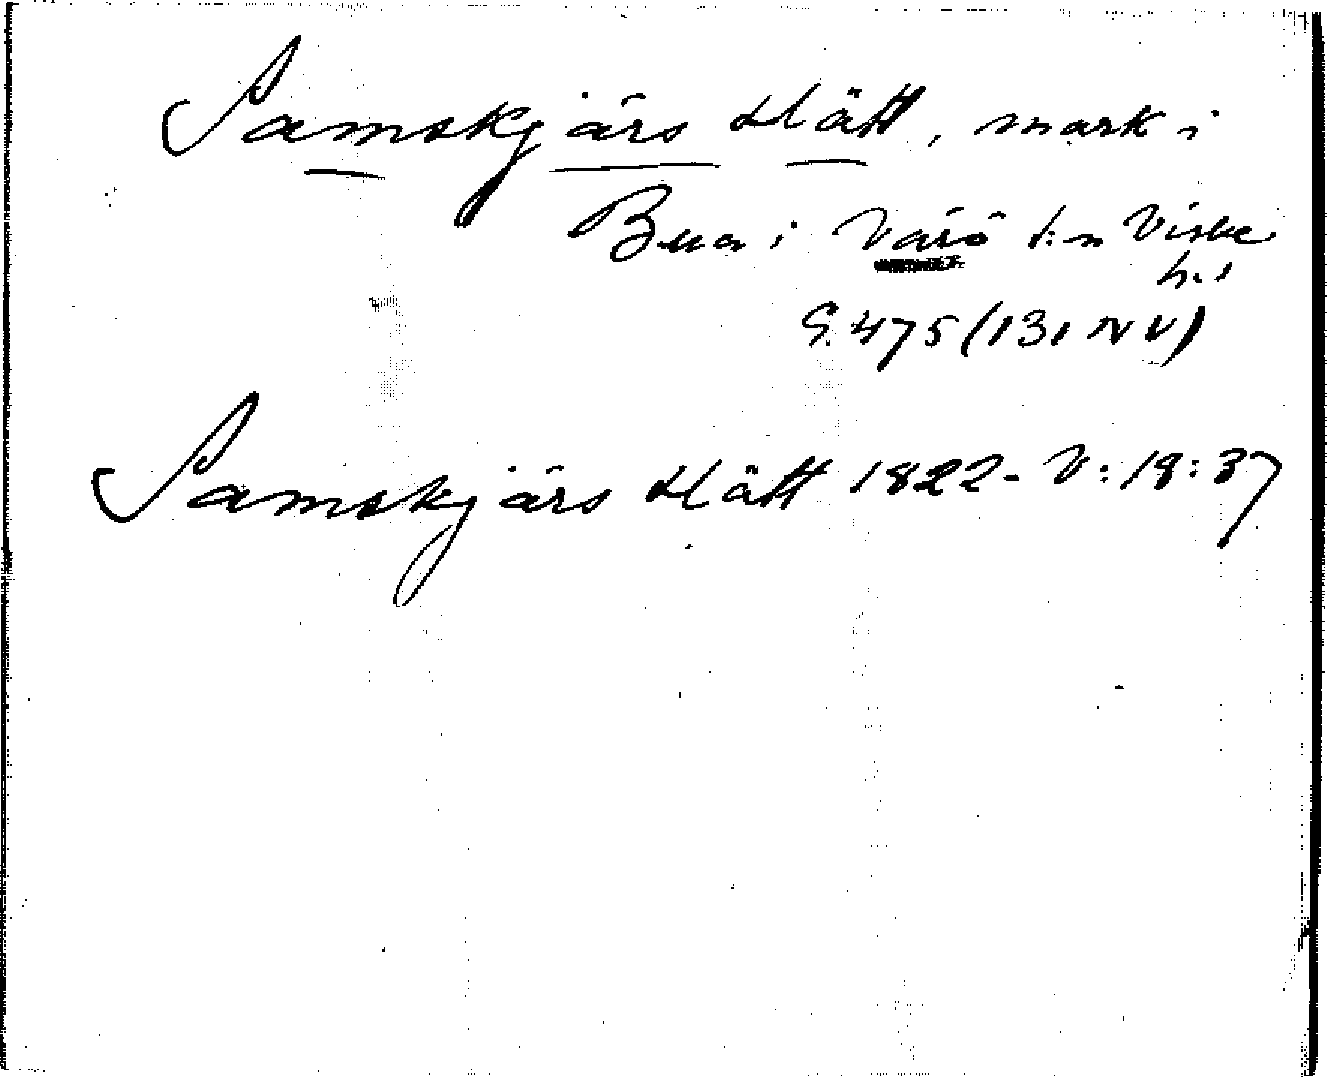 Samskjärs slätt, mark i
Bua i Värö s:n Viske
h.d
G. 475 (131 NV)
Samskjärs slätt 1822 - V: 18: 37